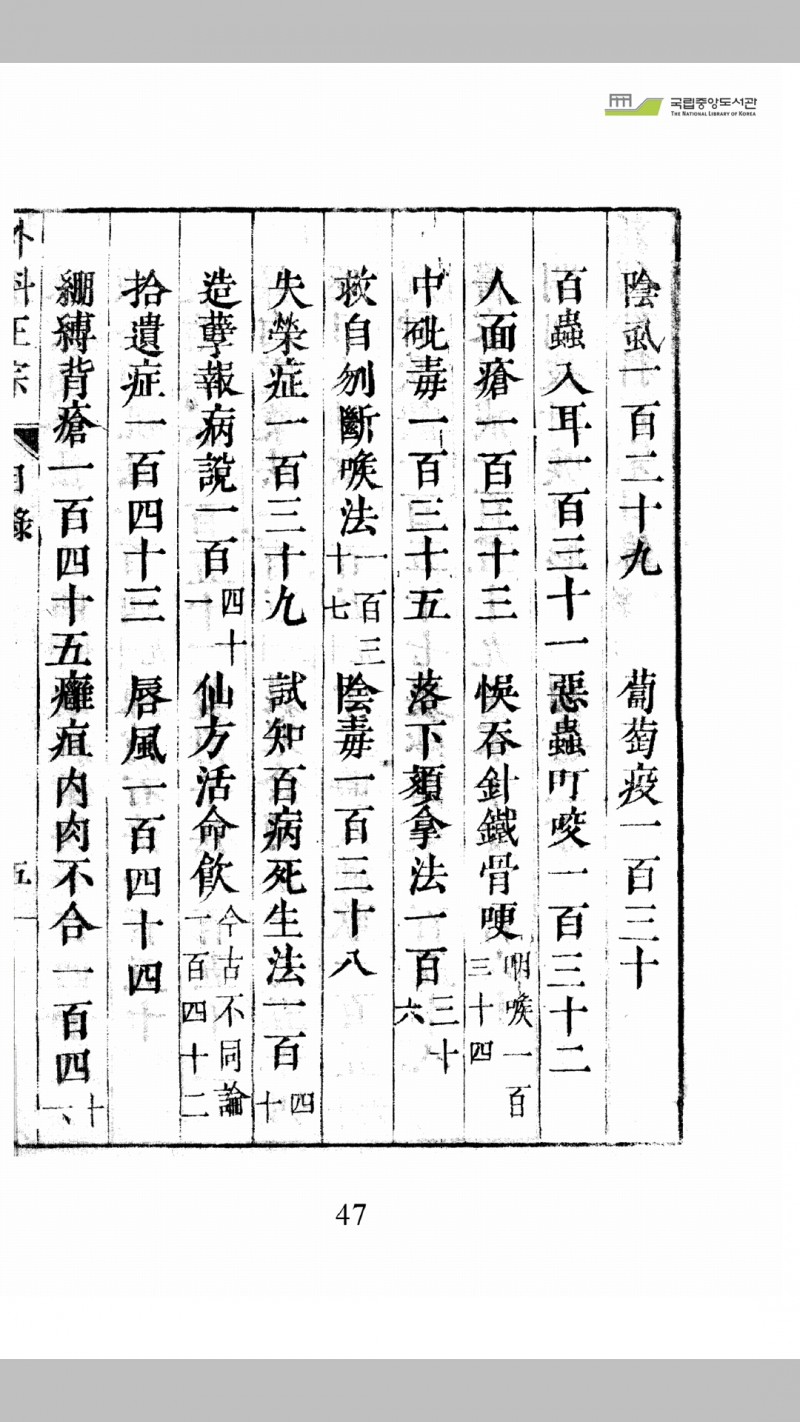 국립중앙도서관
THE NATIONAL LIBRARY OF KOREA
陰虱一百二十九 葡萄疫一百三十
百蟲入耳一百三十一 惡蟲叮咬一百三十二
人面瘡一百三十三 悞吞針鐵骨哽咽喉一百三十四
中砒毒一百三十五 落下頦拿法一百三十六
救自刎斷喉法一百三十七 陰毒一百三十八
失榮症一百三十九 試知百病死生法一百四十
造孽報病說一百四十一 仙方活命飲今古不同論一百四十二
拾遺症一百四十三 唇風一百四十四
綳縛背瘡一百四十五 癰疽內肉不合一百四十六
外科正宗 目錄 五
47